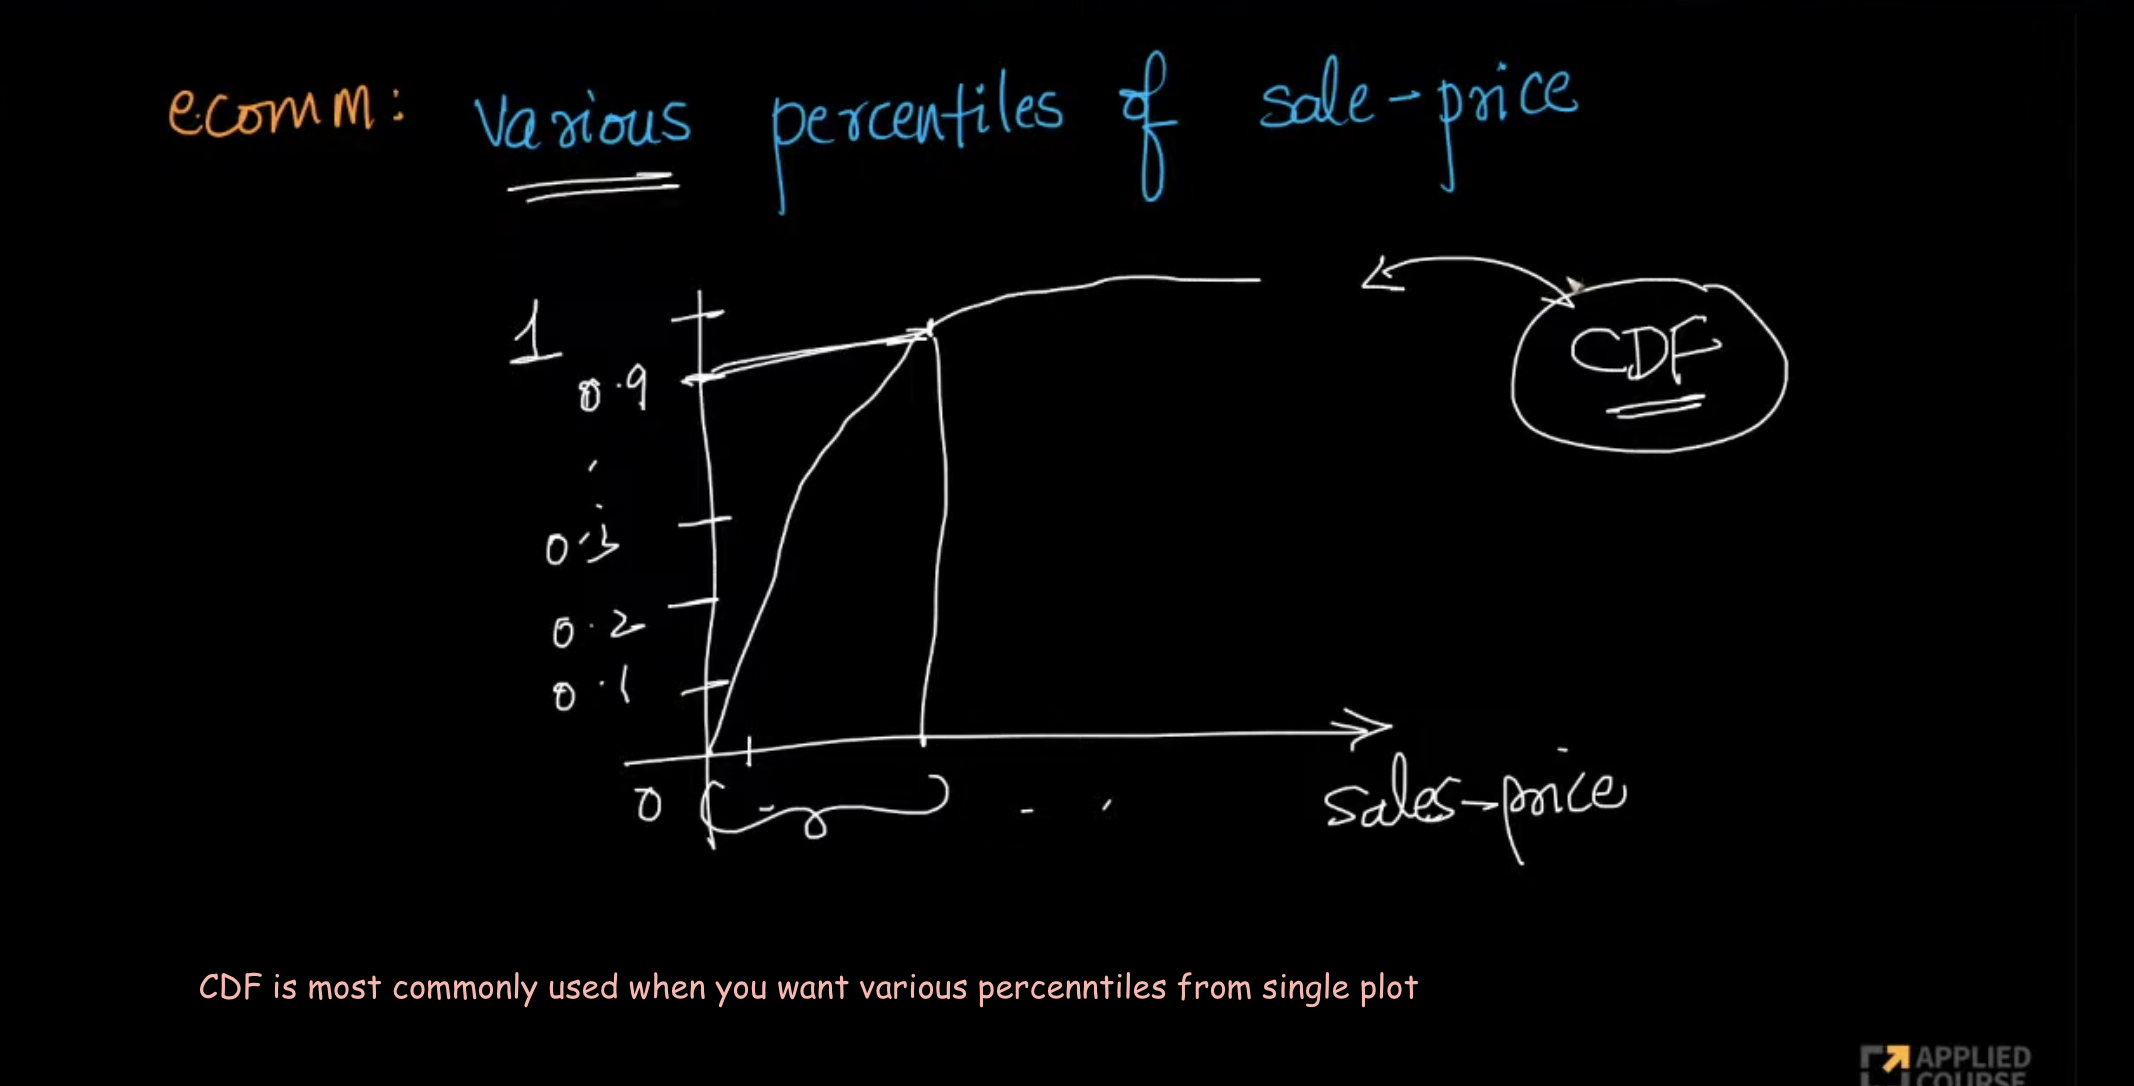 ecomm: various percentiles of sale-price
1
CDF
0.9
0.3
0.2
0.1
0
sales-price
CDF is most commonly used when you want various percenntiles from single plot
APPLIED
COURSE